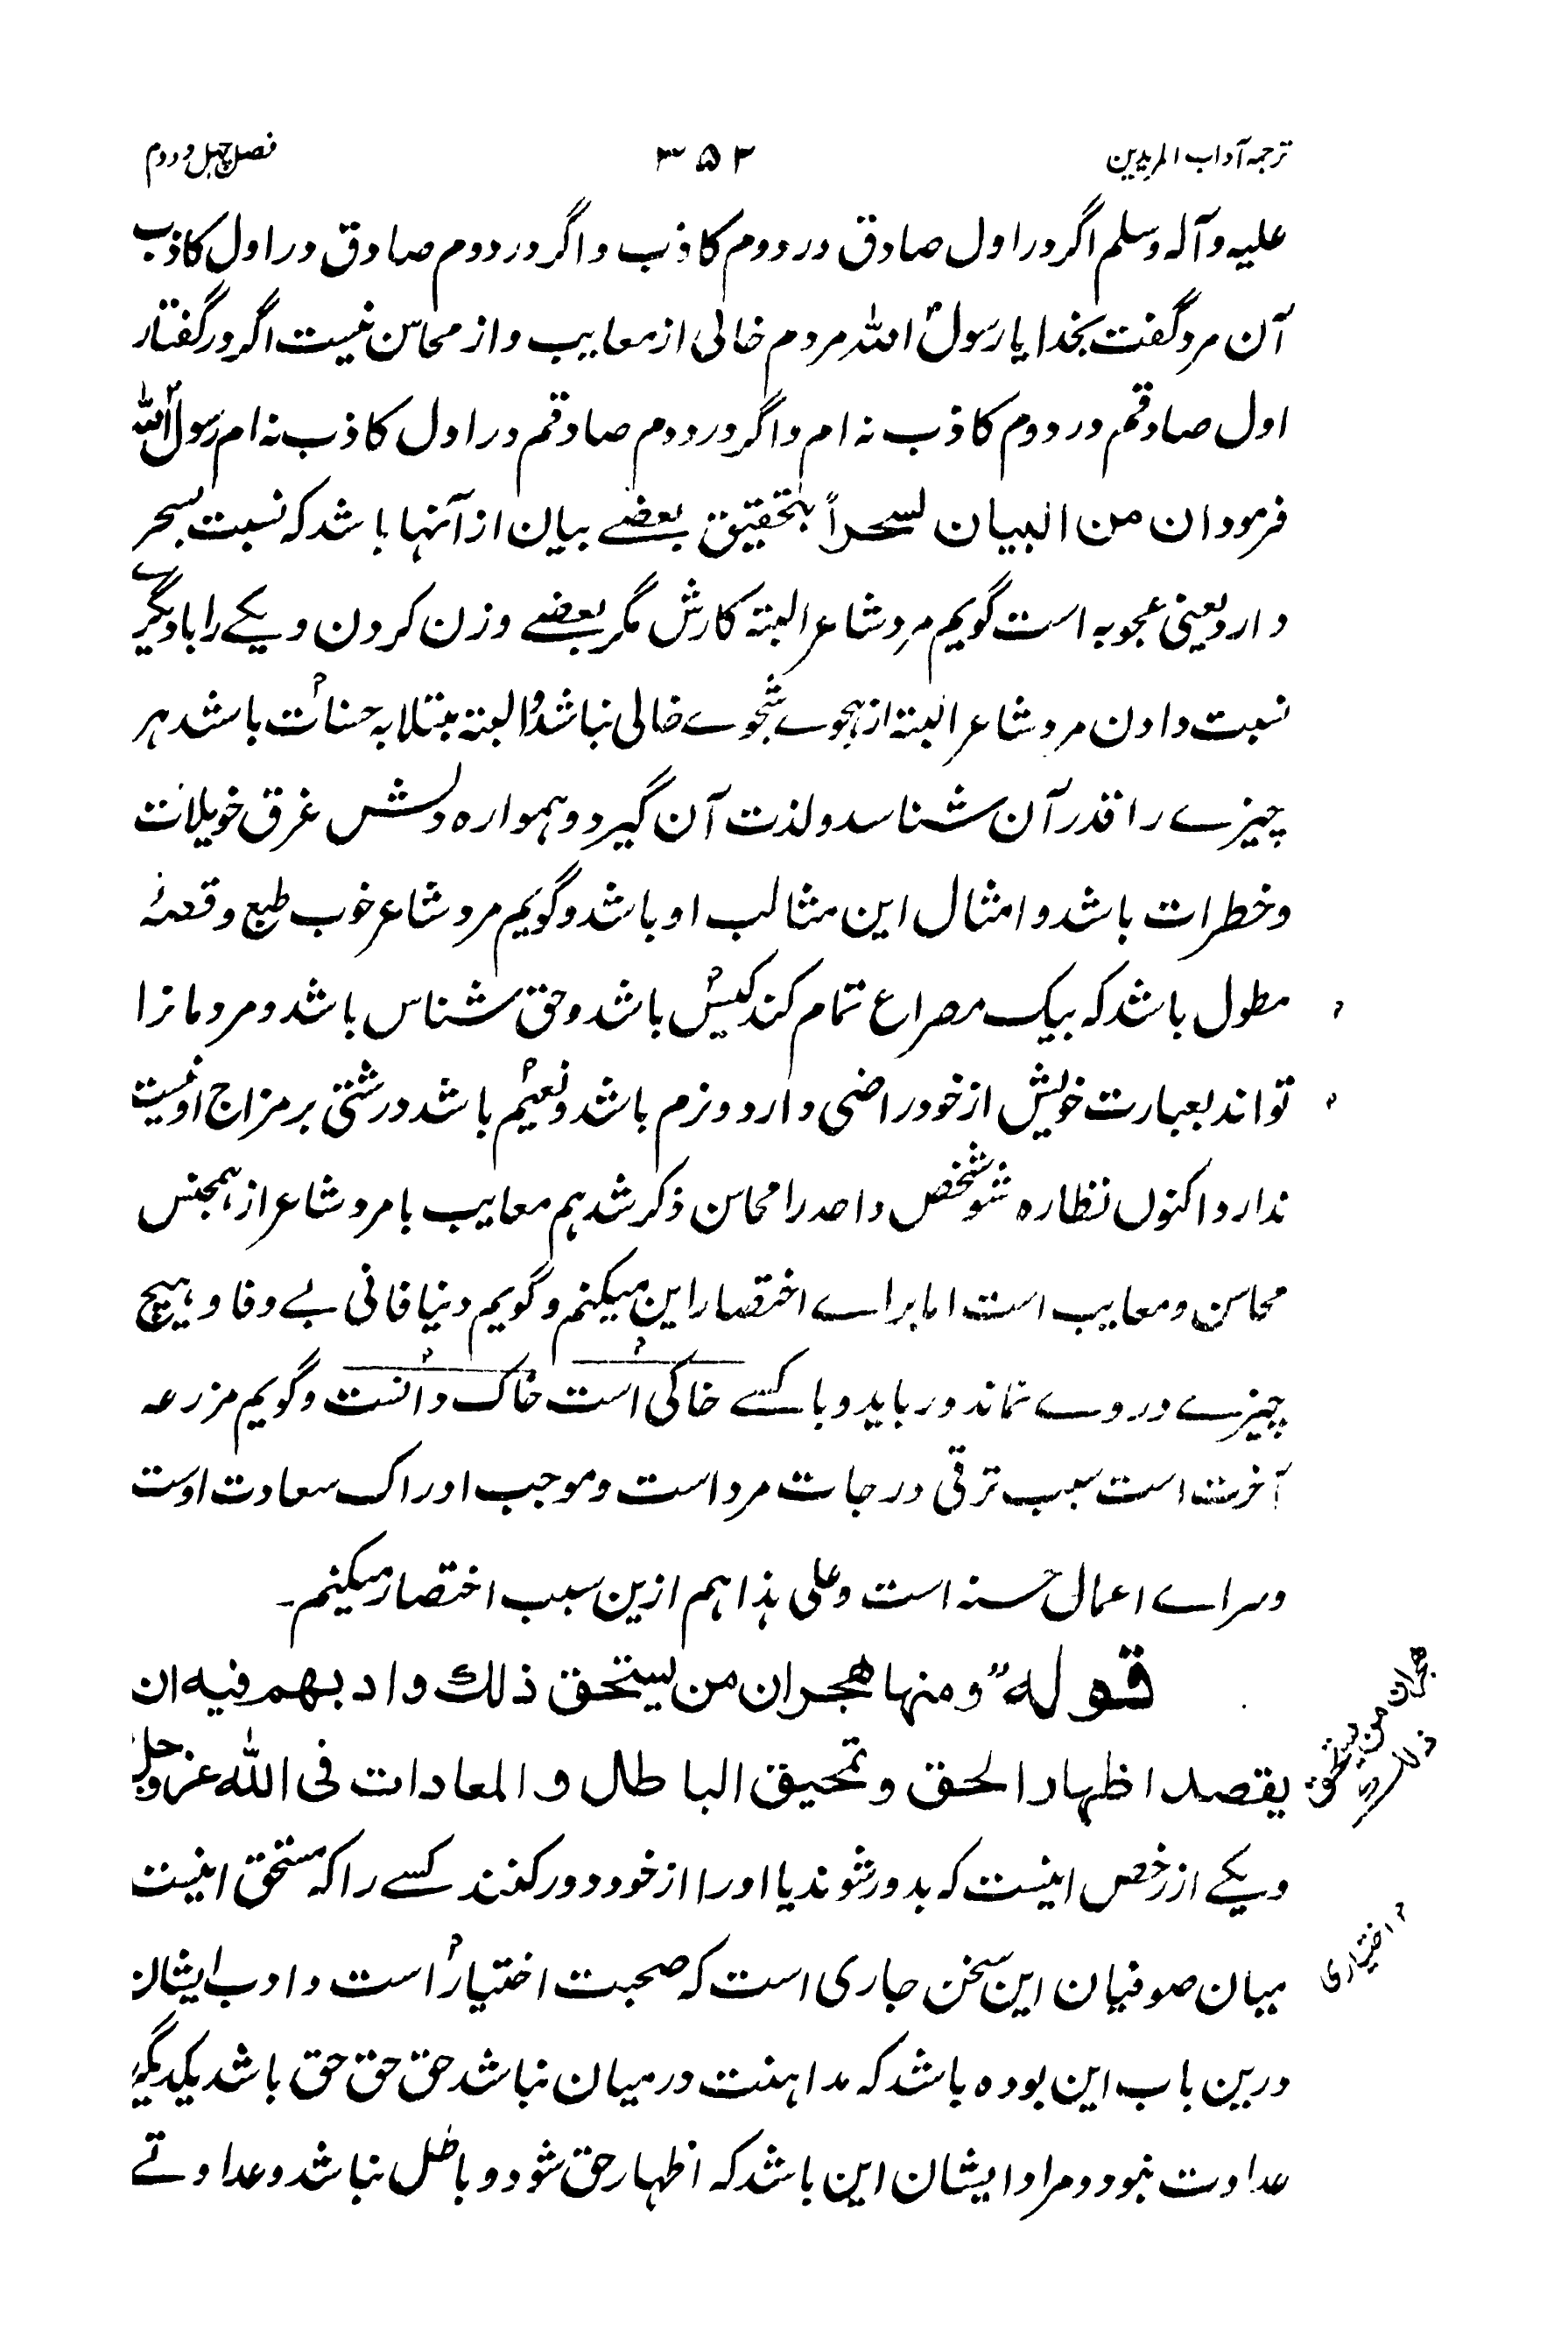 ترجمہ آداب المریدین ۳۵۲ فصل چہل و دوم
علیہ وآلہ وسلم اگر در اول صادق در دوم کاذب و اگر در دوم صادق در اول کاذب
آن مرد گفت بخدا یا رسولؐ اللہ مردم خالی از معایب و از محاسن نیست اگر در گفتار
اول صادقم در دوم کاذب نہ ام و اگر در دوم صادقم در اول کاذب نہ ام رسولؐ اللہ
فرمود ان من البیان لسحراً بتحقیق بعضے بیان از آنہا باشد کہ نسبت بسحر
دارد یعنی عجوبہ است گویم مرد شاعر البتہ کارش مگر بعضے وزن کردن و یکے را با دیگرے
نسبت دادن مرد شاعر البتہ از ہجوے خالی نباشد و البتہ مبتلا بہ حسنات باشد ہر
چیزے را قدر آن شناسد و لذت آن گیرد و ہموارہ دلش غرق خویلات
و خطرات باشد و امثال این مثالب او باشد و گویم مرد شاعر خوب طبع و قصۂ
مطول باشد کہ بیک مصراع تمام کند کیس باشد و حق شناس باشد و مردمانرا
تواند بعبارت خویش از خود راضی دارد و نرم باشد و نعیم باشد درشتی بر مزاج اونیست
ندارد اکنوں نظارہ شو شخص واحد را محاسن ذکر شد ہم معایب با مرد شاعر از ہمجنس
محاسن و معایب است اما براے اختصار این میکنم و گویم دنیا فانی بے وفا و ہیچ
چیزے در وے نماند در باید و با کسے خاکی است خاک دانست و گویم مزرعہ
آخرت است سبب ترقی درجات مرد است و موجب ادراک سعادت اوست
وسراے اعمال حسنہ است و علی ہذا ہم ازین سبب اختصار میکنم۔
قولہ "ومنہا ہجران من یستحق ذلک وادبہم فیہ ان
یقصد اظہار الحق و تمحیق الباطل و المعادات فی اللہ عز وجل
ہجران من یستحق
ذلک
ویکے از رخص اینست کہ بدور شوند یا اورا از خود دور کنند کسے را کہ مستحق اینست
میان صوفیان این سخن جاری است کہ صحبت اختیار است و ادب ایشان
اختیاری
درین باب این بودہ باشد کہ مداہنت درمیان نباشد حق حق حق باشد یکدیگر
عداوت نبود و مراد ایشان این باشد کہ اظہار حق شود و باطل نباشد و عداوتے